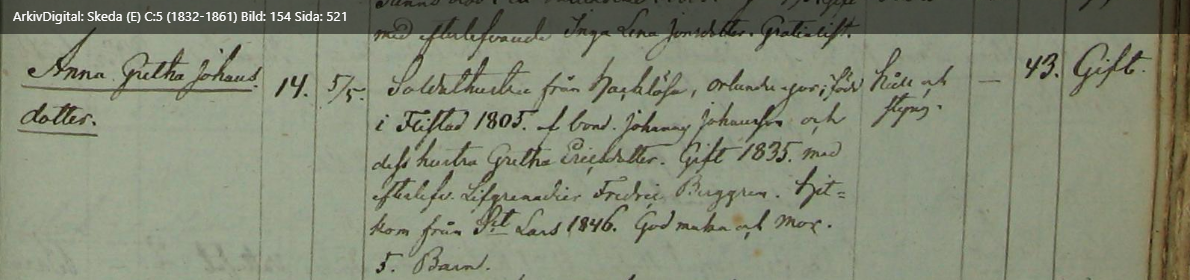 ArkivDigital: Skeda (E) C:5 (1832-1861) Bild: 154 Sida: 521
med efterlefvande Inga Lena Jonsdotter. Gratialist.
Anna Gretha Johans
dotter.
14. 5/5.
Soldathustru från Hacklösa, orlunda - gar; född
i Flistad 1805. af bond. Johannes Johansson och
dess hustru Gretha Ericsdotter. Gift 1835. med
efterlefv. Lifgrenadier Fredric Berggren. Hit=
kom från S:t Lars 1846. God maka och mor.
5. Barn.
Håll och
styng.
— 43. Gift.